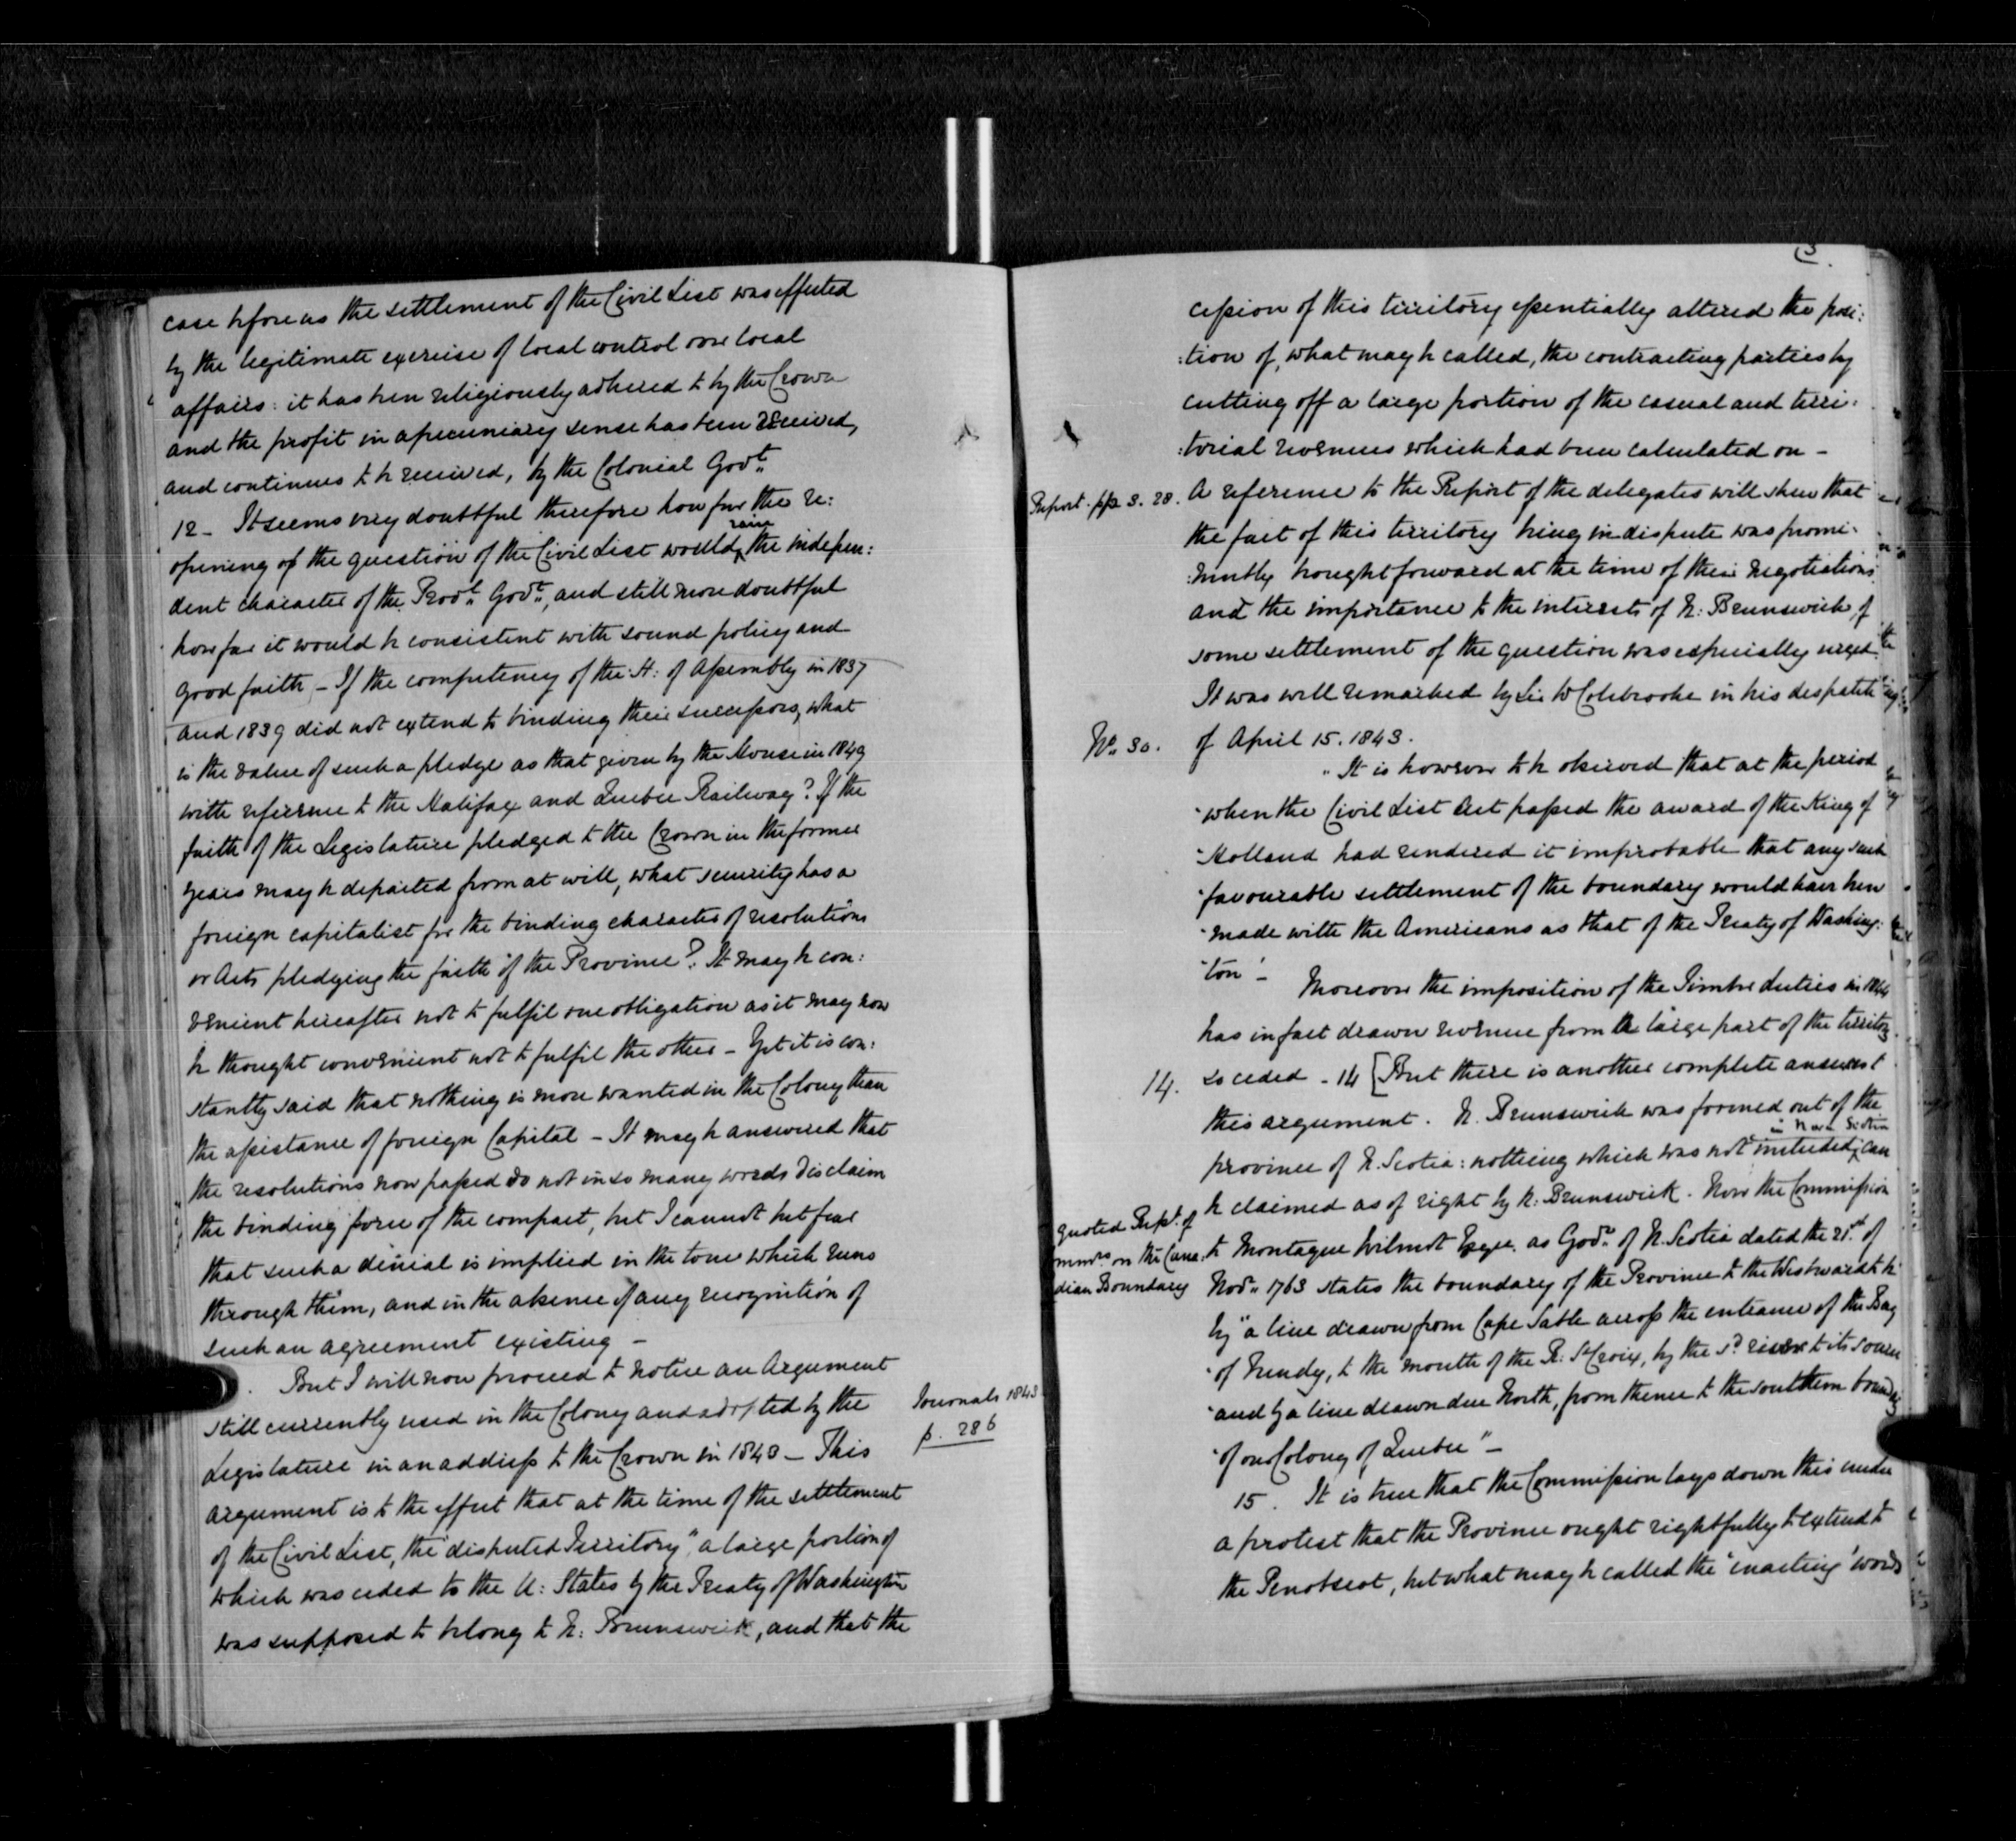 case before us the settlement of the Civil List was effected
by the legitimate exercise of local control over local
affairs: it has been religiously adhered to by the Crown
and the profit in a pecuniary sense has been received,
and continues to be received, by the Colonial Govt.
12 - It seems very doubtful therefore how far the re:
opening of the question of the Civil List would raise the indepen:
dent character of the Provl. Govt., and still more doubtful
how far it would be consistent with sound policy and
good faith - If the competency of the H: of Assembly in 1837
and 1839 did not extend to binding their successors, what
is the value of such a pledge as that given by the House in 1849
with reference to the Halifax and Quebec Railway? If the
faith of the Legislature pledged to the Crown in the former
years may be departed from at will, what security has a
foreign capitalist for the binding character of resolutions
or Acts pledging the faith of the Province? It may be con:
venient hereafter not to fulfil one obligation as it may now
be thought convenient not to fulfil the other - Yet it is con:
stantly said that nothing is more wanted in the Colony than
the assistance of foreign Capital - It may be answered that
the resolutions now passed do not in so many words disclaim
the binding force of the compact, but I cannot but fear
that such a denial is implied in the tone which runs
through them, and in the absence of any recognition of
such an agreement existing -
But I will now proceed to notice an Argument
still currently used in the Colony and adopted by the
Legislature in an address to the Crown in 1843 - This
Journals 1843
p. 286
argument is to the effect that at the time of the settlement
of the Civil List, the "disputed Territory", a large portion of
which was ceded to the U: States by the Treaty of Washington
was supposed to belong to N: Brunswick, and that the
cession of this territory essentially altered the posi:
:tion of, what may be called, the contracting parties by
cutting off a large portion of the casual and terri:
:torial revenues which had been calculated on -
Report. pp 3. 28.
A reference to the Report of the delegates will shew that
the fact of this territory being in dispute was promi:
:nently brought forward at the time of their negotiations
and the importance to the interests of N: Brunswick of
some settlement of the question was especially urged.
It was well remarked by Sir W Colebrooke in his despatch
No. 30.
of April 15. 1843.
"It is however to be observed that at the period
"when the Civil List Act passed the award of the King of
"Holland had rendered it improbable that any such
"favourable settlement of the boundary would have been
"made with the Americans as that of the Treaty of Washing:
"ton" -
Moreover the imposition of the Timber duties in 1844
has in fact drawn revenue from a large part of the territory
14.
so ceded - 14 [But there is another complete answer to
this argument. N. Brunswick was formed out of the
province of N. Scotia: nothing which was not included in Nova Scotia can
be claimed as of right by N: Brunswick. Now the Commission
quoted Rept. of
on the Cana:
dian Boundary
to Montague Wilmot Esqre. as Govr. of N. Scotia dated the 21st of
Novr. 1763 states the boundary of the Province to the Westward to be
by "a line drawn from Cape Sable across the entrance of the Bay
"of Fundy, to the mouth of the R: St Croix, by the sd. river to its source
"and by a line drawn due North, from thence to the southern boundary
"of our Colony of Quebec" -
15. It is true that the Commission lays down this under
a protest that the Province ought rightfully to extend to
the Penobscot, but what may be called the 'enacting' words